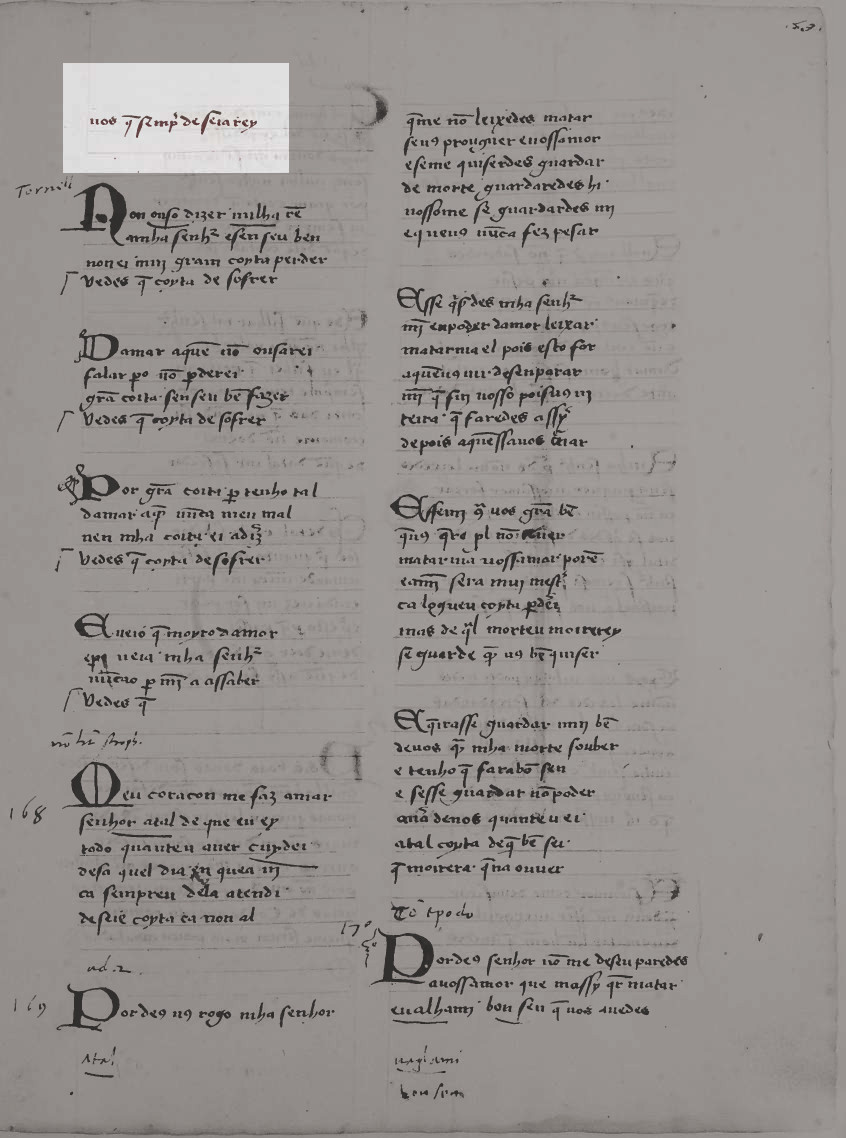 uos q̄ semp̄ deseiarey
Tornell
Non ouso dizer nulha rē
amha senhʳ esen seu ben
non ei mui gram coyta perder
Vedes q̄ coyta de sofrer
Damar aquē nō ousarei
falar ꝑo nō ꝑderei
grā coita sen seu bē fazer
Vedes q̄ coyta de sofrer
Por grā coita ꝑ tenho tal
damar aq̄ nūca meu mal
nen mha coita ei adiz̄
Vedes q̄ coyta de sofrer
E ueio q̄ moyro damor
epq̄ ueia mha senhʳ
nūcao ꝑ mī a assaber
Vedes q̄
168
Meu coracon me faz amar
senhor atal de que eu ey
todo quanteu auer cuydei
desa quel dia en quea ui
ca sempreu dela atendi
deseie coyta ca non al
ad. 2.
169
Pordeꝯ uꝯ rogo mha senhor
Atal
q̄me nō leixedes matar
seuꝯ prouguer euossamor
eseme quiserdes guardar
de morte guardaredes hi
uossome sē guardardes mi
equeuꝯ nūca fez pesar
Esse q̄sdes mha senhʳ
mī enpoder damor leixar
matarma el pois esto for
aquēuꝯ uir desenparar
mī q̄ fui uosso poisuꝯ ui
terra q̄ faredes assy
depois aquessauos tornar
Essemi nō uos grā bē
q̄uꝯ q̄ro ual nō ouuer
matarma uossamor porē
eamī sera mui mest̄
ca logueu coyta ꝑderey
mas de q̄l morteu moirerey
sē guarde q̄ uꝯ bē quiser
E q̄irasse guardar mui bē
deuos q̄ mha morte souber
e tenho q̄ fara bō sen
e sesse guardar nō poder
auā deuos quanteu ei
atal coyta deq̄ bē sei
q̄ moirera q̄na ouuer
170
Pordeꝯ senhor nō me desenparedes
auossamor que massy qr̄ matar
eualhami bon sen q̄ uos auedes
uaglami
bon sen